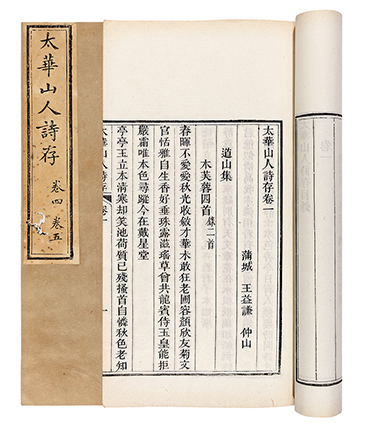 太華山人詩存
卷四 卷五
太華山人詩存卷一
蒲城 王益謙 仲山
道山集
木芙蓉四首 錄二首
春暉不愛愛秋光收斂才華未敢狂老圃容顏欣友菊文
官恬雅自生香好垂珠露滋瑤草曾共龍賓侍玉皇能拒
嚴霜唯本色尋蹤今在戴星堂
亭亭玉立本清寒却笑池荷質已殘搔首自憐秋色老知
太華山人詩存 卷一 一